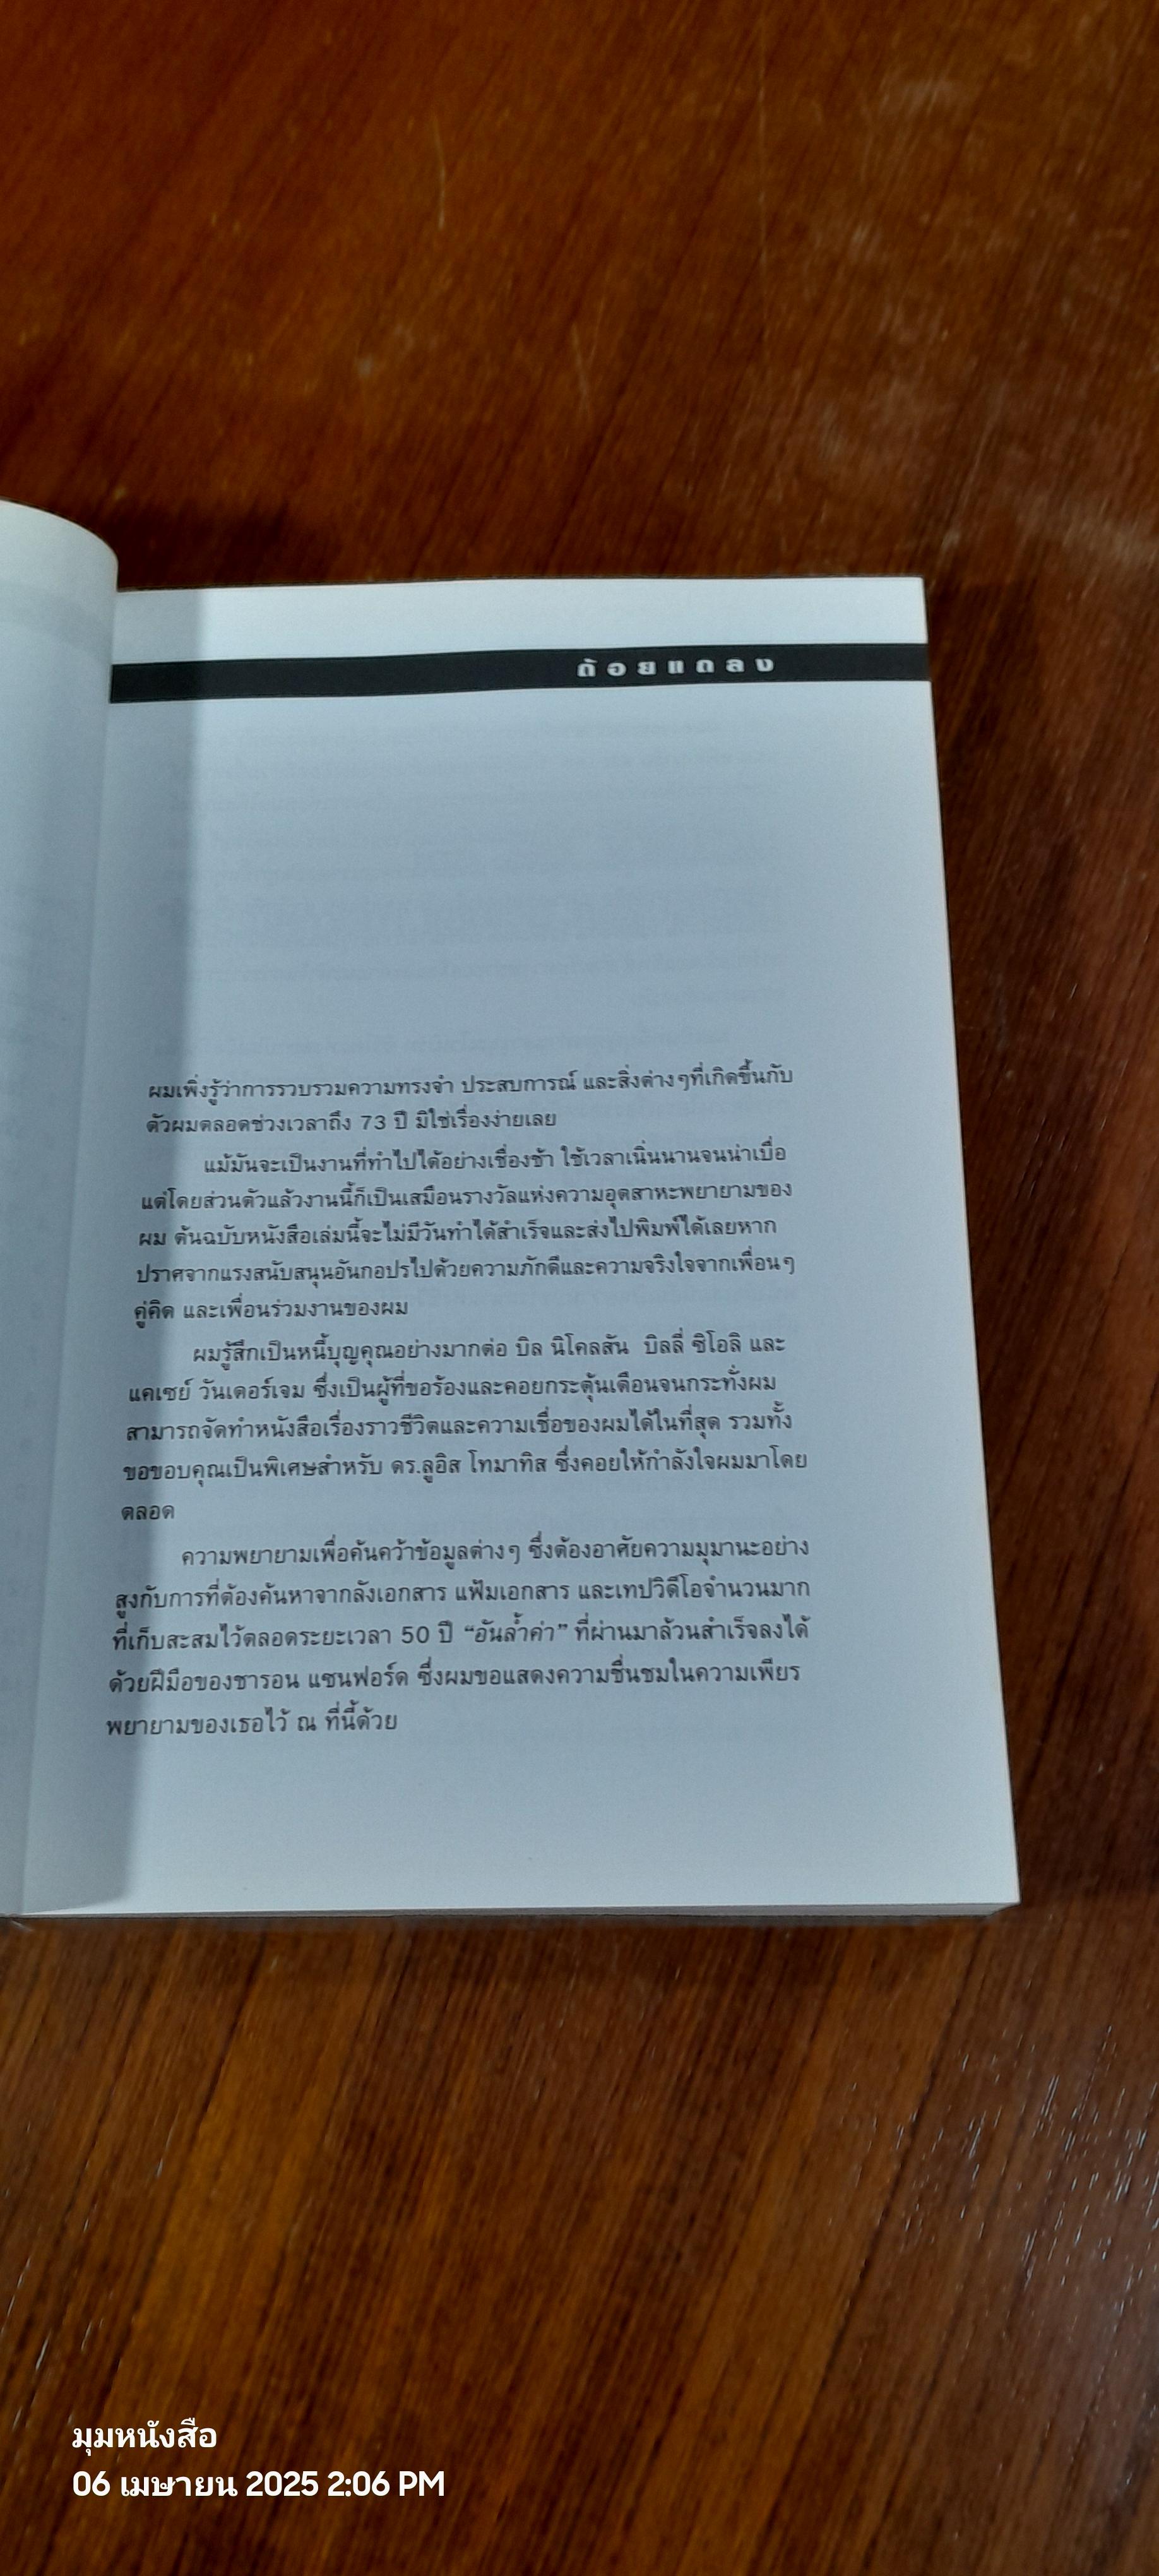 ถ้อยแถลง
ผมเพิ่งรู้ว่าการรวบรวมความทรงจำ ประสบการณ์ และสิ่งต่างๆที่เกิดขึ้นกับ
ตัวผมตลอดช่วงเวลาถึง 73 ปี มิใช่เรื่องง่ายเลย
แม้มันจะเป็นงานที่ทำไปได้อย่างเชื่องช้า ใช้เวลาเนิ่นนานจนน่าเบื่อ
แต่โดยส่วนตัวแล้วงานนี้ก็เป็นเสมือนรางวัลแห่งความอุตสาหะพยายามของ
ผม ต้นฉบับหนังสือเล่มนี้จะไม่มีวันทำได้สำเร็จและส่งไปพิมพ์ได้เลยหาก
ปราศจากแรงสนับสนุนอันกอปรไปด้วยความภักดีและความจริงใจจากเพื่อนๆ
คู่คิด และเพื่อนร่วมงานของผม
ผมรู้สึกเป็นหนี้บุญคุณอย่างมากต่อ บิล นิโคลสัน บิลลี่ ซิโอลิ และ
แคเซย์ วันเดอร์เจม ซึ่งเป็นผู้ที่ขอร้องและคอยกระตุ้นเตือนจนกระทั่งผม
สามารถจัดทำหนังสือเรื่องราวชีวิตและความเชื่อของผมได้ในที่สุด รวมทั้ง
ขอขอบคุณเป็นพิเศษสำหรับ ดร.ลูอิส โทมาทิส ซึ่งคอยให้กำลังใจผมมาโดย
ตลอด
ความพยายามเพื่อค้นคว้าข้อมูลต่างๆ ซึ่งต้องอาศัยความมุมานะอย่าง
สูงกับการที่ต้องค้นหาจากลังเอกสาร แฟ้มเอกสาร และเทปวิดีโอจำนวนมาก
ที่เก็บสะสมไว้ตลอดระยะเวลา 50 ปี “อันล้ำค่า” ที่ผ่านมาล้วนสำเร็จลงได้
ด้วยฝีมือของชารอน แซนฟอร์ด ซึ่งผมขอแสดงความชื่นชมในความเพียร
พยายามของเธอไว้ ณ ที่นี้ด้วย
มุมหนังสือ
06 เมษายน 2025 2:06 PM